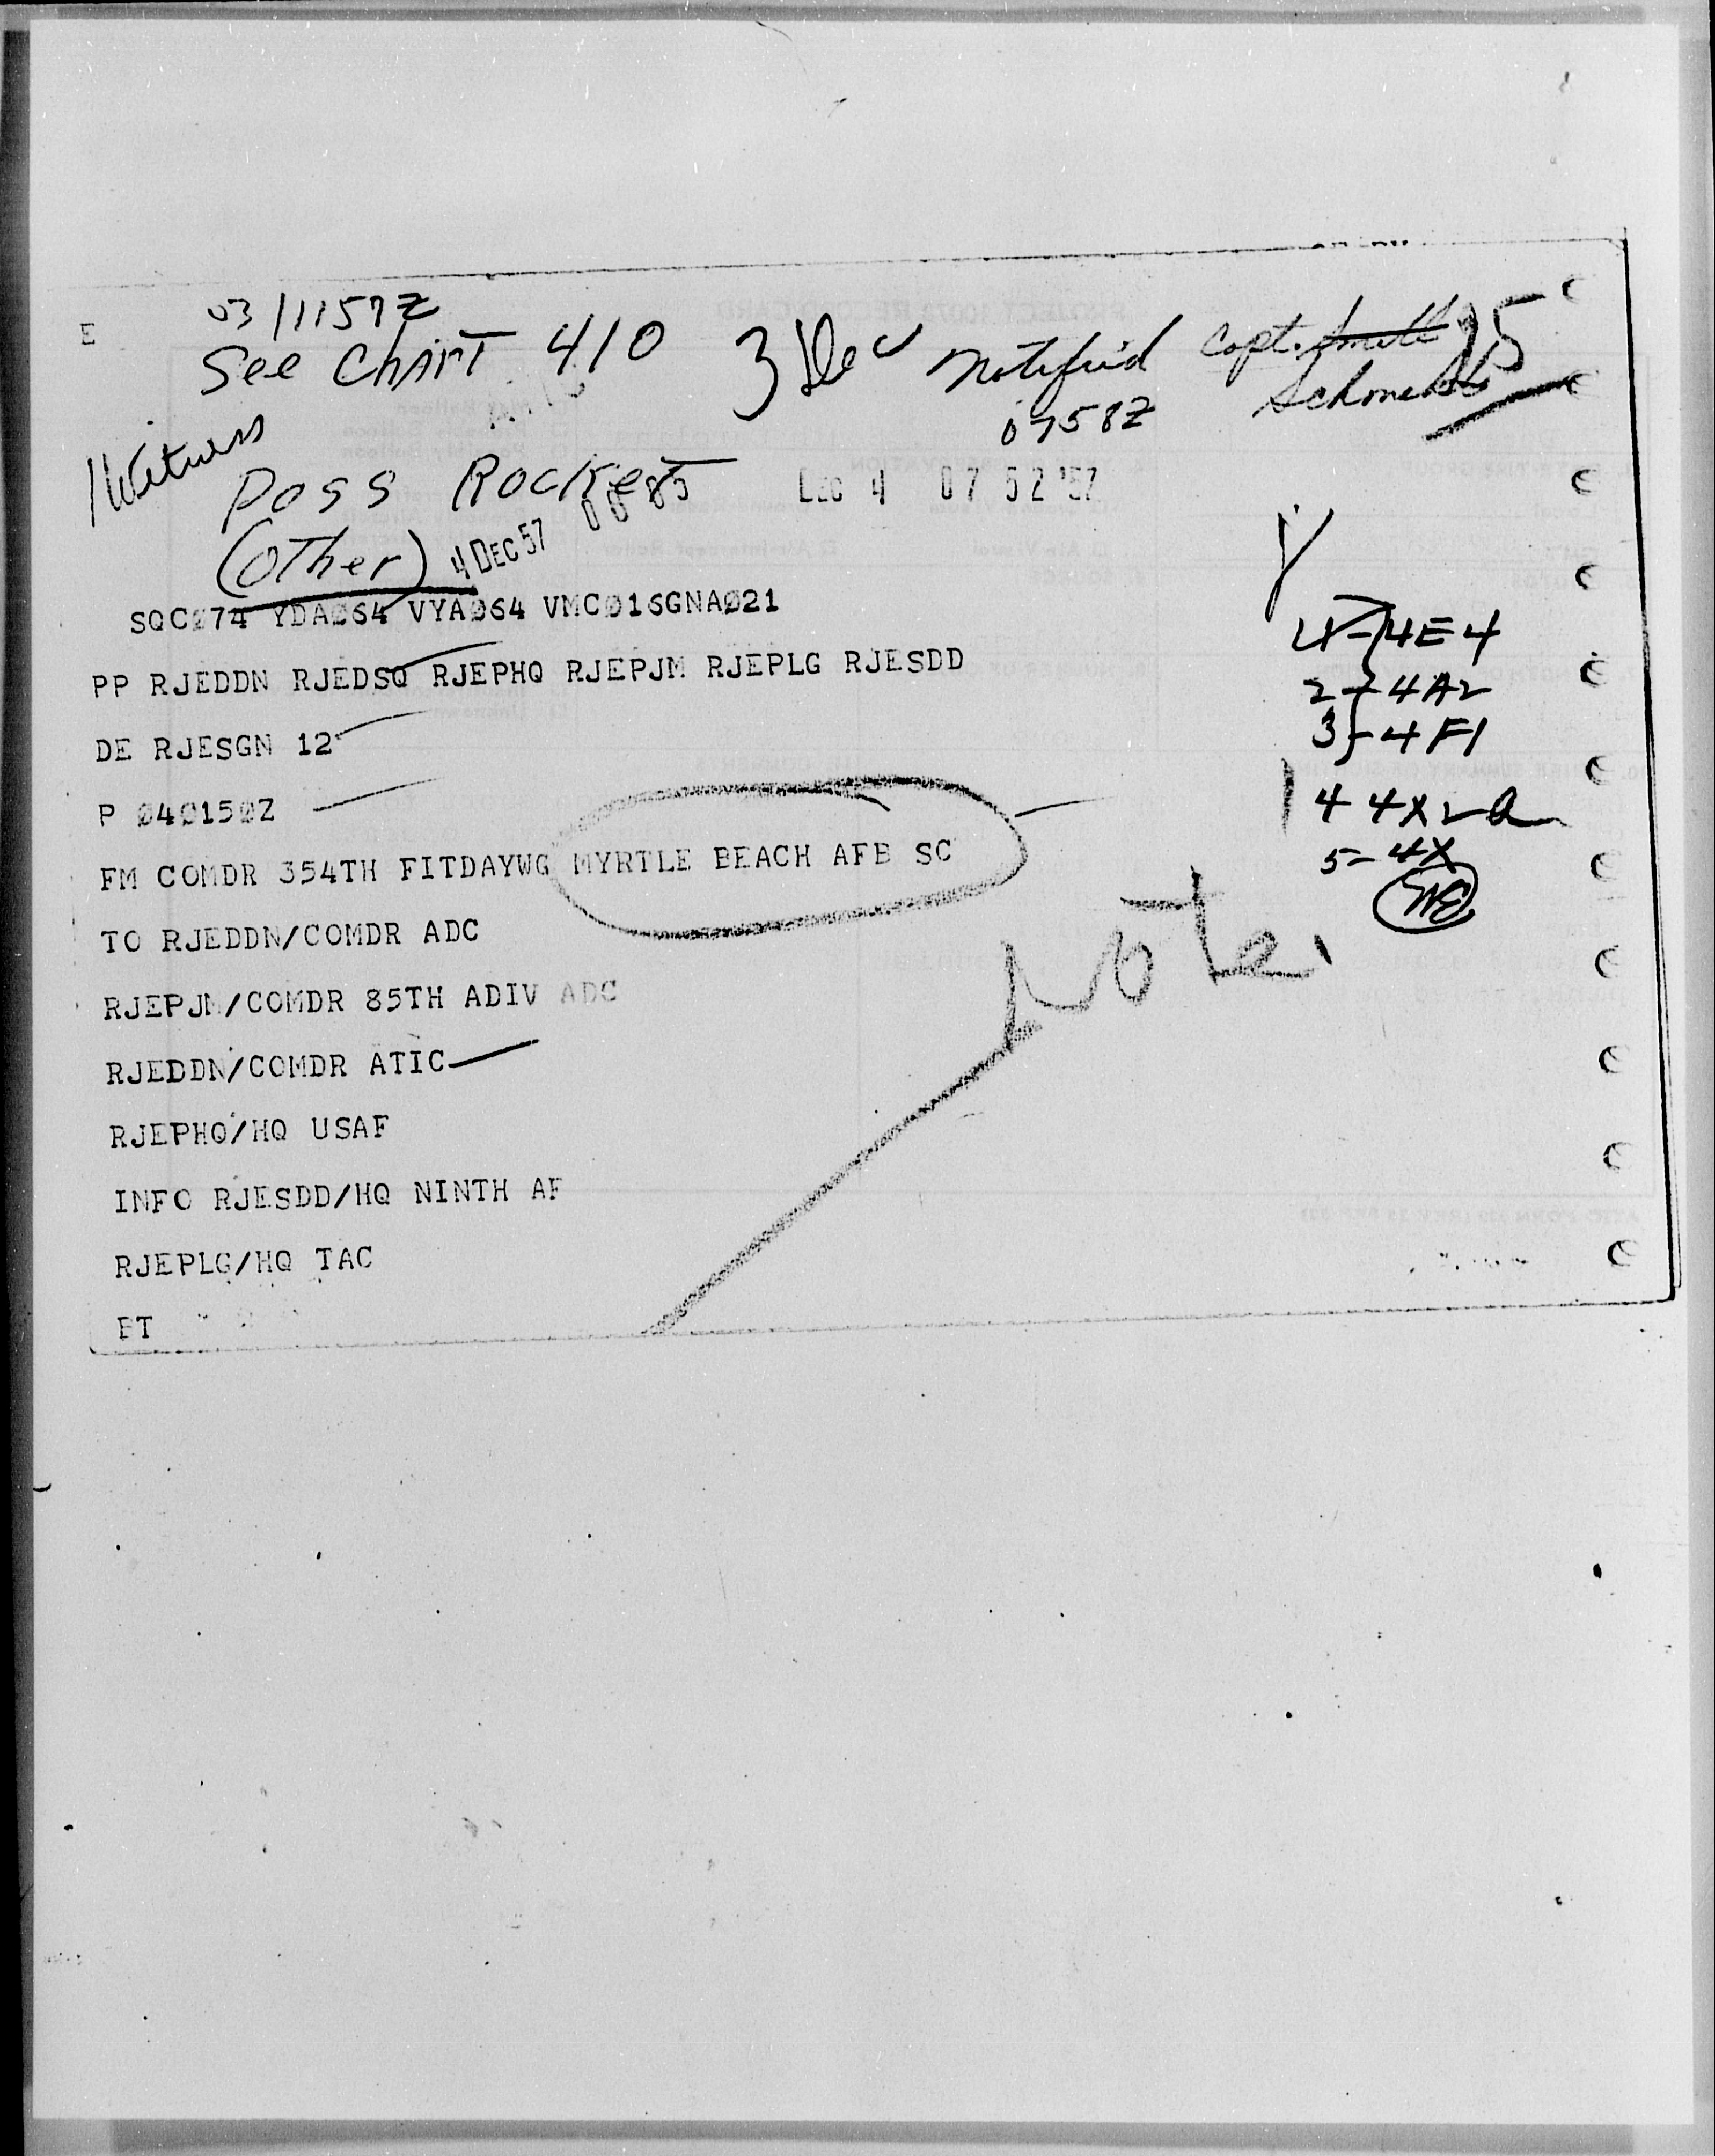 E
03/1157Z
See Chart 410 3 Dec notified Capt. 15
0758Z
Witness
Poss Rocket
DEC 4 07 52 '57
(Other) 4 DEC 57
SQC274 YDA064 VYA064 VMC016GNA021
PP RJEDDN RJEDSQ RJEPHQ RJEPJM RJEPLG RJESDD
DE RJESGN 12
P 040150Z
FM COMDR 354TH FITDAYWG MYRTLE BEACH AFB SC
TO RJEDDN/COMDR ADC
RJEPJM/COMDR 85TH ADIV ADC
RJEDDN/COMDR ATIC
RJEPHQ/HQ USAF
INFO RJESDD/HQ NINTH AF
RJEPLG/HQ TAC
BT
4E4
2 - 4A2
3 - 4F1
4 4X2
5- 4X
Note